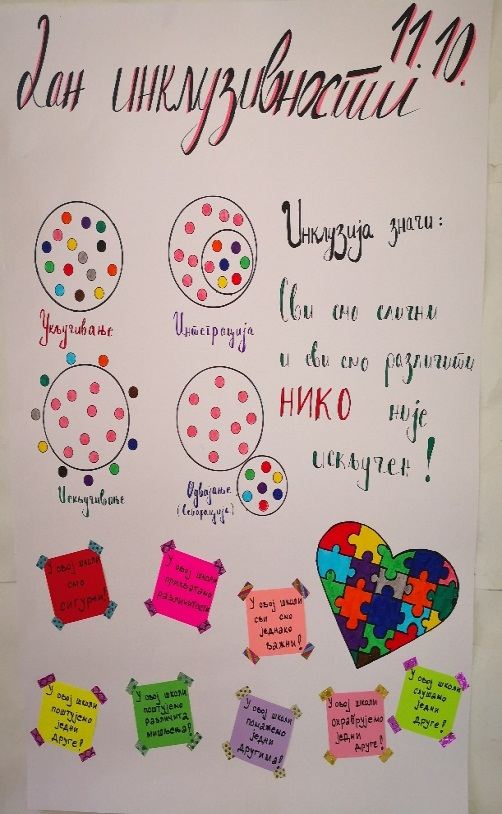 Дан инклузивности 11.10.
Укључивање
Интеграција
Искључивање
Одвајање
(Сепарација)
Инклузија значи:
Сви смо слични
и сви смо различити
НИКО није
искључен!
У овој школи
смо
сигурни!
У овој школи
прихватамо
различитости
У овој школи
сви смо
једнако
важни!
У овој школи
поштујемо
једни
друге!
У овој школи
поштујемо
различита
мишљења!
У овој школи
помажемо
једни
другима!
У овој школи
охрабрујемо
једни
друге!
У овој школи
слушамо
једни
друге!